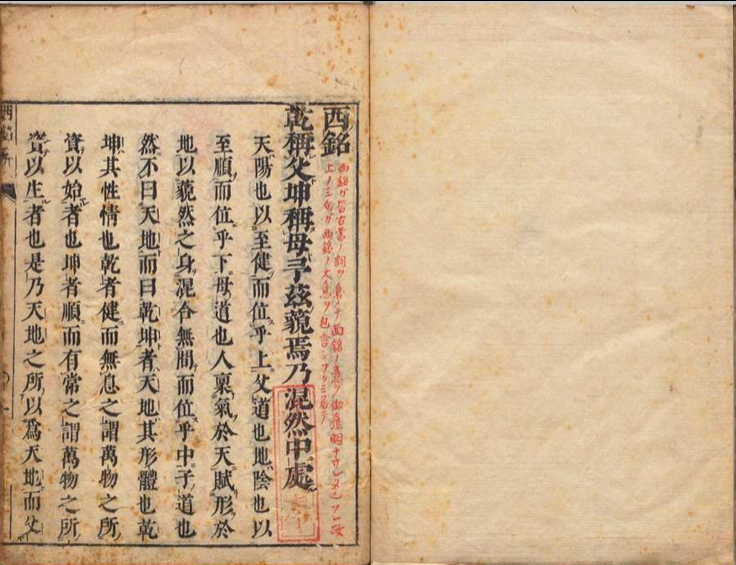 西銘
西銘ガ皆古書ノ詞ヲ集メテ西銘ノ意ヲ
上ノ三句ガ西銘ノ大意ヲ包含
乾稱父坤稱母予茲藐焉乃混然中處
天陽也以至健而位乎上父道也地陰也以
至順而位乎下母道也人禀氣於天賦形於
地以藐然之身混合無間而位乎中子道也
然不曰天地而曰乾坤者天地其形體也乾
坤其性情也乾者健而無息之謂萬物之所
資以始者也坤者順而有常之謂萬物之所
資以生者也是乃天地之所以爲天地而父